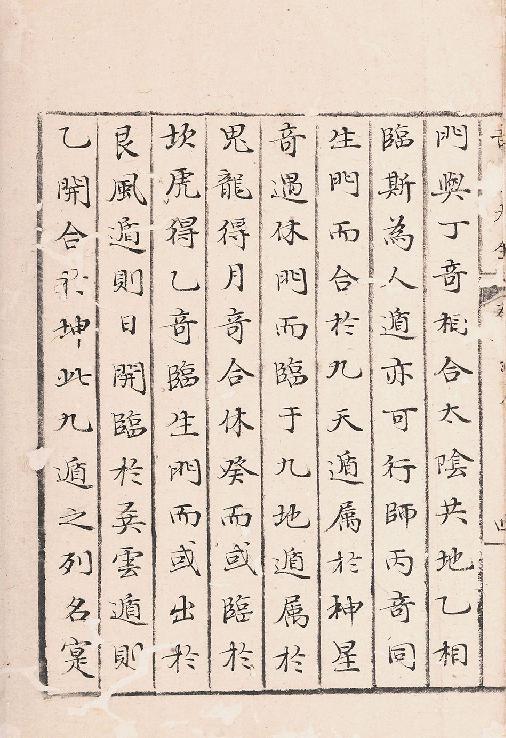 門與丁奇相合太陰共地乙相
臨斯為人遁亦可行師丙奇同
生門而合於九天遁属於神星
奇遇休門而臨于九地遁属於
鬼龍得月奇合休癸而或臨於
坎虎得乙奇臨生門而或出於
艮風遁則日開臨於巽雲遁則
乙開合於坤此九遁之列名寔